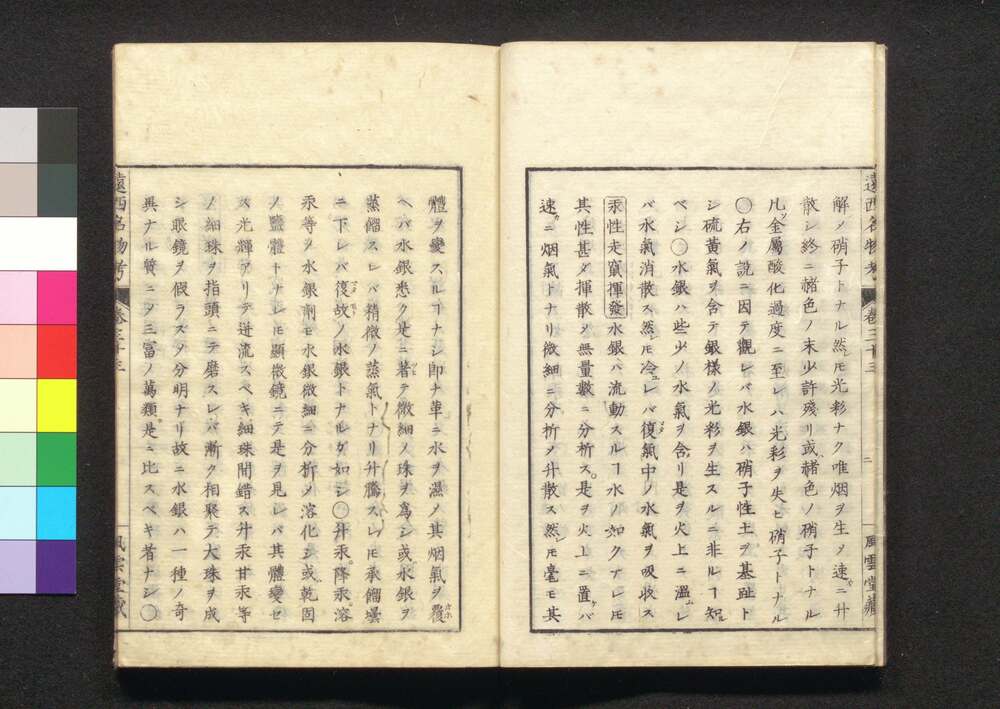 遠西名物考 卷三十三 二 風雲堂藏
解メ硝子トナル然レ𪜈光彩ナク唯烟ヲ生メ速ニ廾
散シ終ニ赭色ノ末少許殘リ或ハ赭色ノ硝子トナル
凡ソ金屬酸化過度ニ至レハ光彩ヲ失ヒ硝子トナル
〇右ノ說ニ因テ觀レバ水銀ハ硝子性土ヲ基趾ト
シ硫黃氣ヲ含テ銀樣ノ光彩ヲ生スルニ非ルヿ知
ベシ〇水銀ハ些少ノ水氣ヲ含リ是ヲ火上ニ溫レ
バ水氣消散ス然レ𪜈冷レバ復氣中ノ水氣ヲ吸收ス
汞性走竄揮發 水銀ハ流動スルヿ水ノ如クナレ𪜈
其性甚ダ揮散シ無量數ニ分析ス是ヲ火上ニ置バ
速ニ烟氣トナリ微細ニ分析メ升散ス然レ𪜈毫モ其
體ヲ變スルヿナシ卽チ革ニ水ヲ濕メ其烟氣ヲ覆
ヘバ水銀悉ク是ニ著テ微細ノ珠ヲ爲シ或ハ水銀ヲ
蒸餾スレバ精微ノ蒸氣トナリ升騰スレ𪜈承餾壜
ニ下レバ復故ノ水銀トナルガ如シ〇升汞降汞溶
汞等ヲ水銀劑モ水銀微細ニ分析メ溶化シ或ハ乾固
ノ鹽體トナレ𪜈顯微鏡ニテ是ヲ見レバ其體變セ
ス光輝アリテ迸流スベキ細珠間錯ス升汞甘汞等
ノ細珠ヲ指頭ニテ磨スレバ漸ク相聚テ大珠ヲ成
シ眼鏡ヲ假ラズメ分明ナリ故ニ水銀ハ一種ノ奇
異ナル質ニメ三冨ノ萬類是ニ比スベキ者ナシ〇
遠西名物考 卷三十三 風雲堂藏